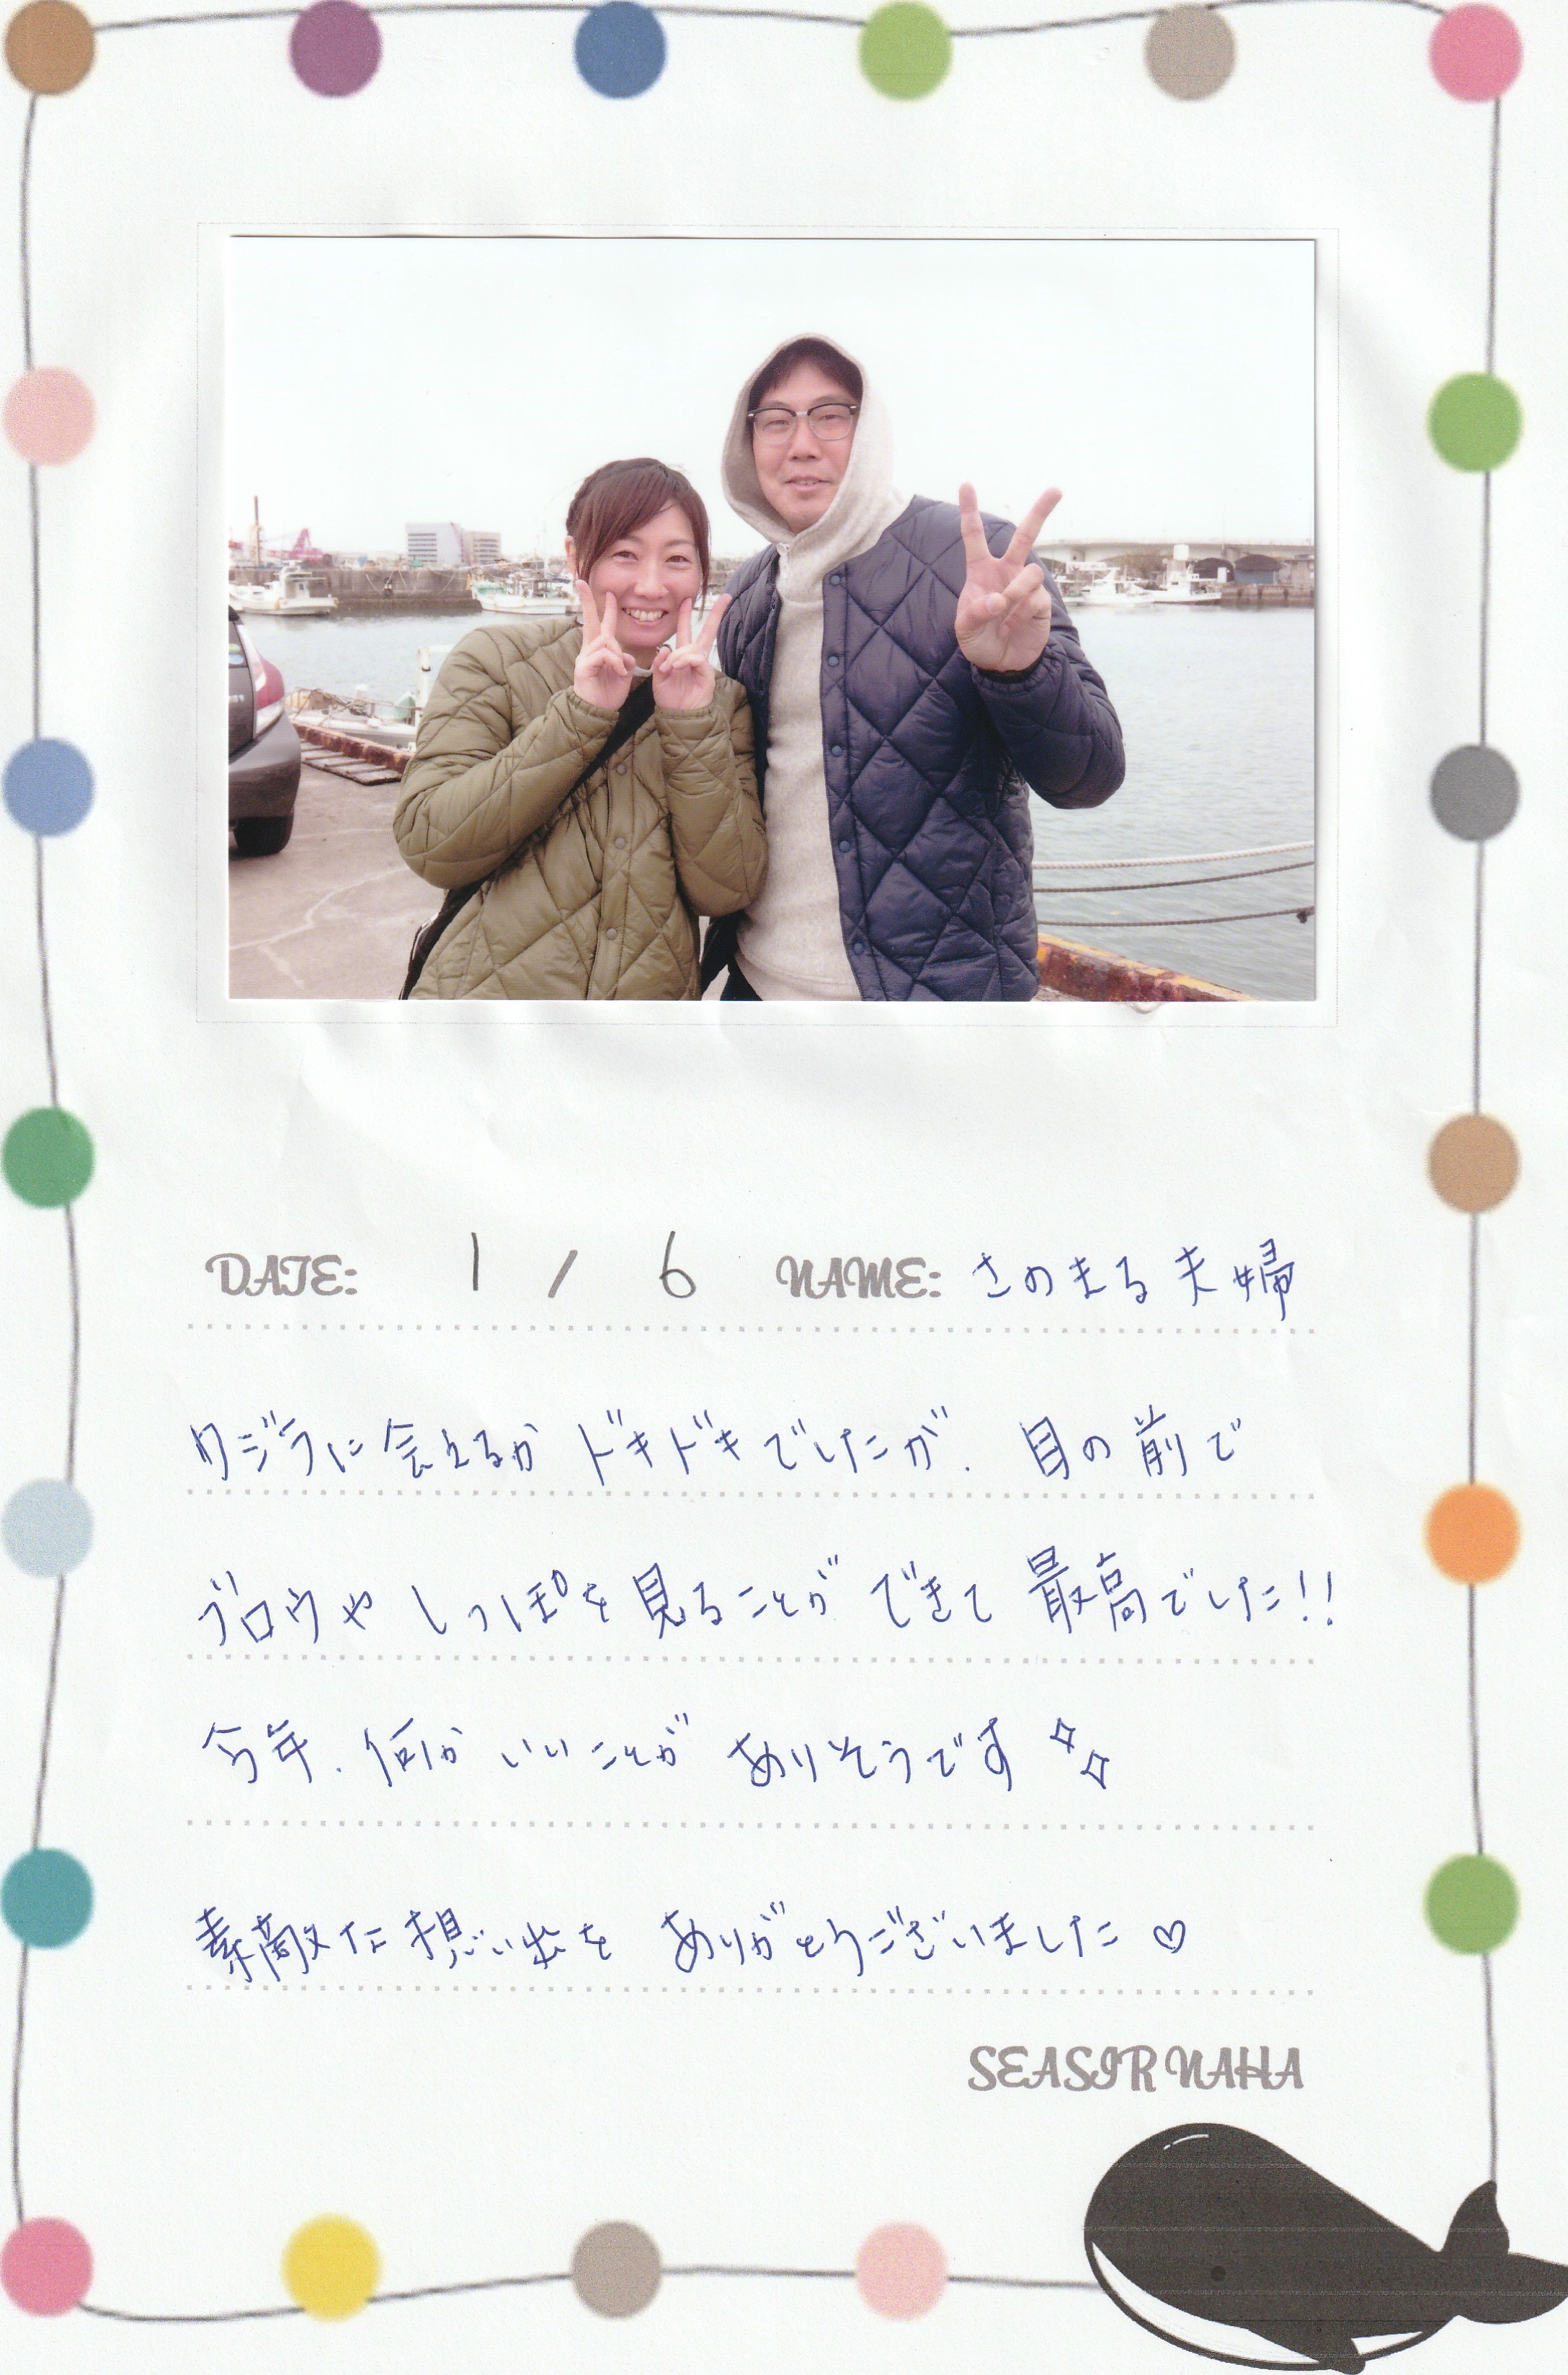 DATE: 1 / 6 NAME: さのまる夫婦
クジラに会えるか ドキドキでしたが、目の前で
ブロウや しっぽを見ることが できて 最高でした!!
今年、何か いいことが ありそうです ✧✧
素敵な想い出を ありがとうございました ♡
SEASIR NAHA